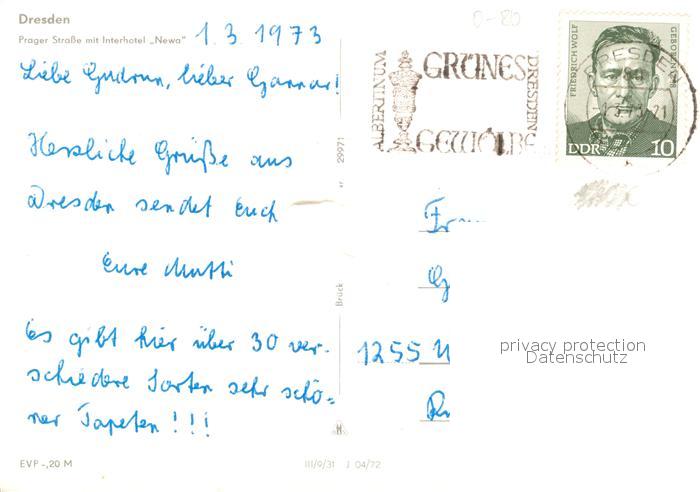 Dresden
Prager Straße mit Interhotel „Newa“
1.3.1973
Liebe Gudrun, lieber Gunnar!
Herzliche Grüße aus
Dresden sendet Euch
Eure Mutti
Es gibt hier über 30 ver-
schiedene Sorten sehr schö-
ner Tapeten!!!
EVP -,20 M
III/9/31 J 04/72
29971
Brück
0-80
ALBERTINUM
GRÜNES
GEWÖLBE
DRESDEN
FRIEDRICH WOLF
DDR 10
DRESDEN
1255
privacy protection
Datenschutz